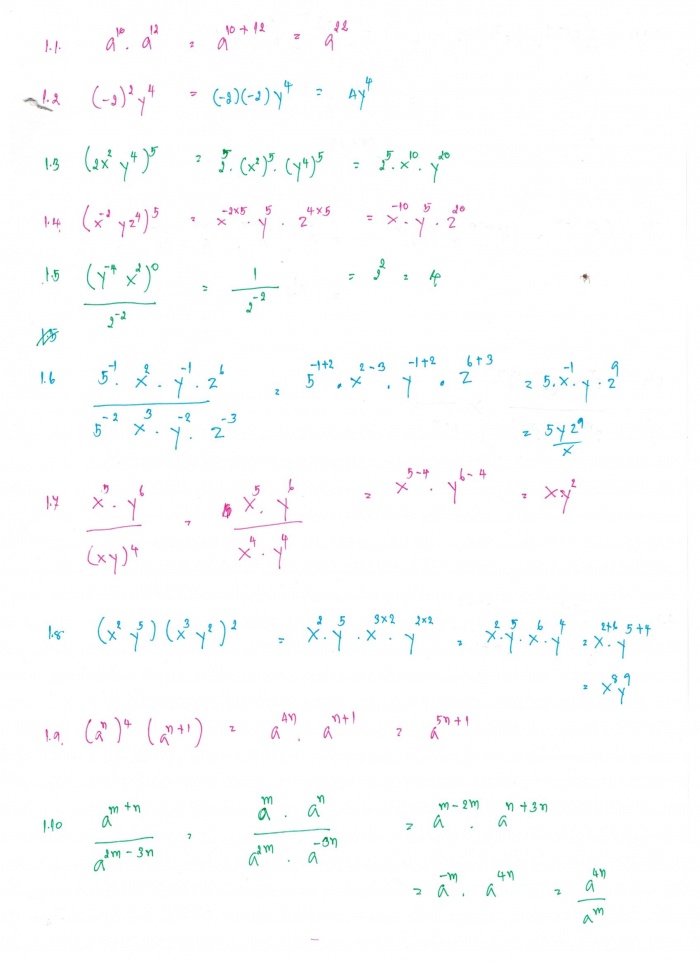 1.1. a¹⁰ · a¹² = a¹⁰⁺¹² = a²²
1.2 (-2)² y⁴ = (-2)(-2) y⁴ = 4y⁴
1.3 (2x² y⁴)⁵ = 2⁵ · (x²)⁵ · (y⁴)⁵ = 2⁵ · x¹⁰ · y²⁰
1.4. (x⁻² y z⁴)⁵ = x^(-2×5) · y⁵ · z^(4×5) = x⁻¹⁰ · y⁵ · z²⁰
1.5 (y⁻⁴ x²)⁰ / 2⁻² = 1 / 2⁻² = 2² = 4
1.6 5⁻¹ · x² · y⁻¹ · z⁶ / 5⁻² x³ · y⁻² · z⁻³ = 5^(-1+2) · x^(2-3) · y^(-1+2) · z^(6+3) = 5 · x⁻¹ · y · z⁹
= 5yz⁹ / x
1.7 x⁵ · y⁶ / (xy)⁴ = x⁵ · y⁶ / x⁴ · y⁴ = x^(5-4) · y^(6-4) = xy²
1.8 (x² y⁵)(x³ y²)² = x² · y⁵ · x^(3×2) · y^(2×2) = x² · y⁵ · x⁶ · y⁴ = x^(2+6) · y^(5+4)
= x⁸y⁹
1.9. (aⁿ)⁴ (aⁿ⁺¹) = a⁴ⁿ · aⁿ⁺¹ = a⁵ⁿ⁺¹
1.10 a^(m+n) / a^(2m-3n) = a^m · a^n / a^(2m) · a^(-3n) = a^(m-2m) · a^(n+3n)
= a^(-m) · a^(4n) = a^(4n) / a^m